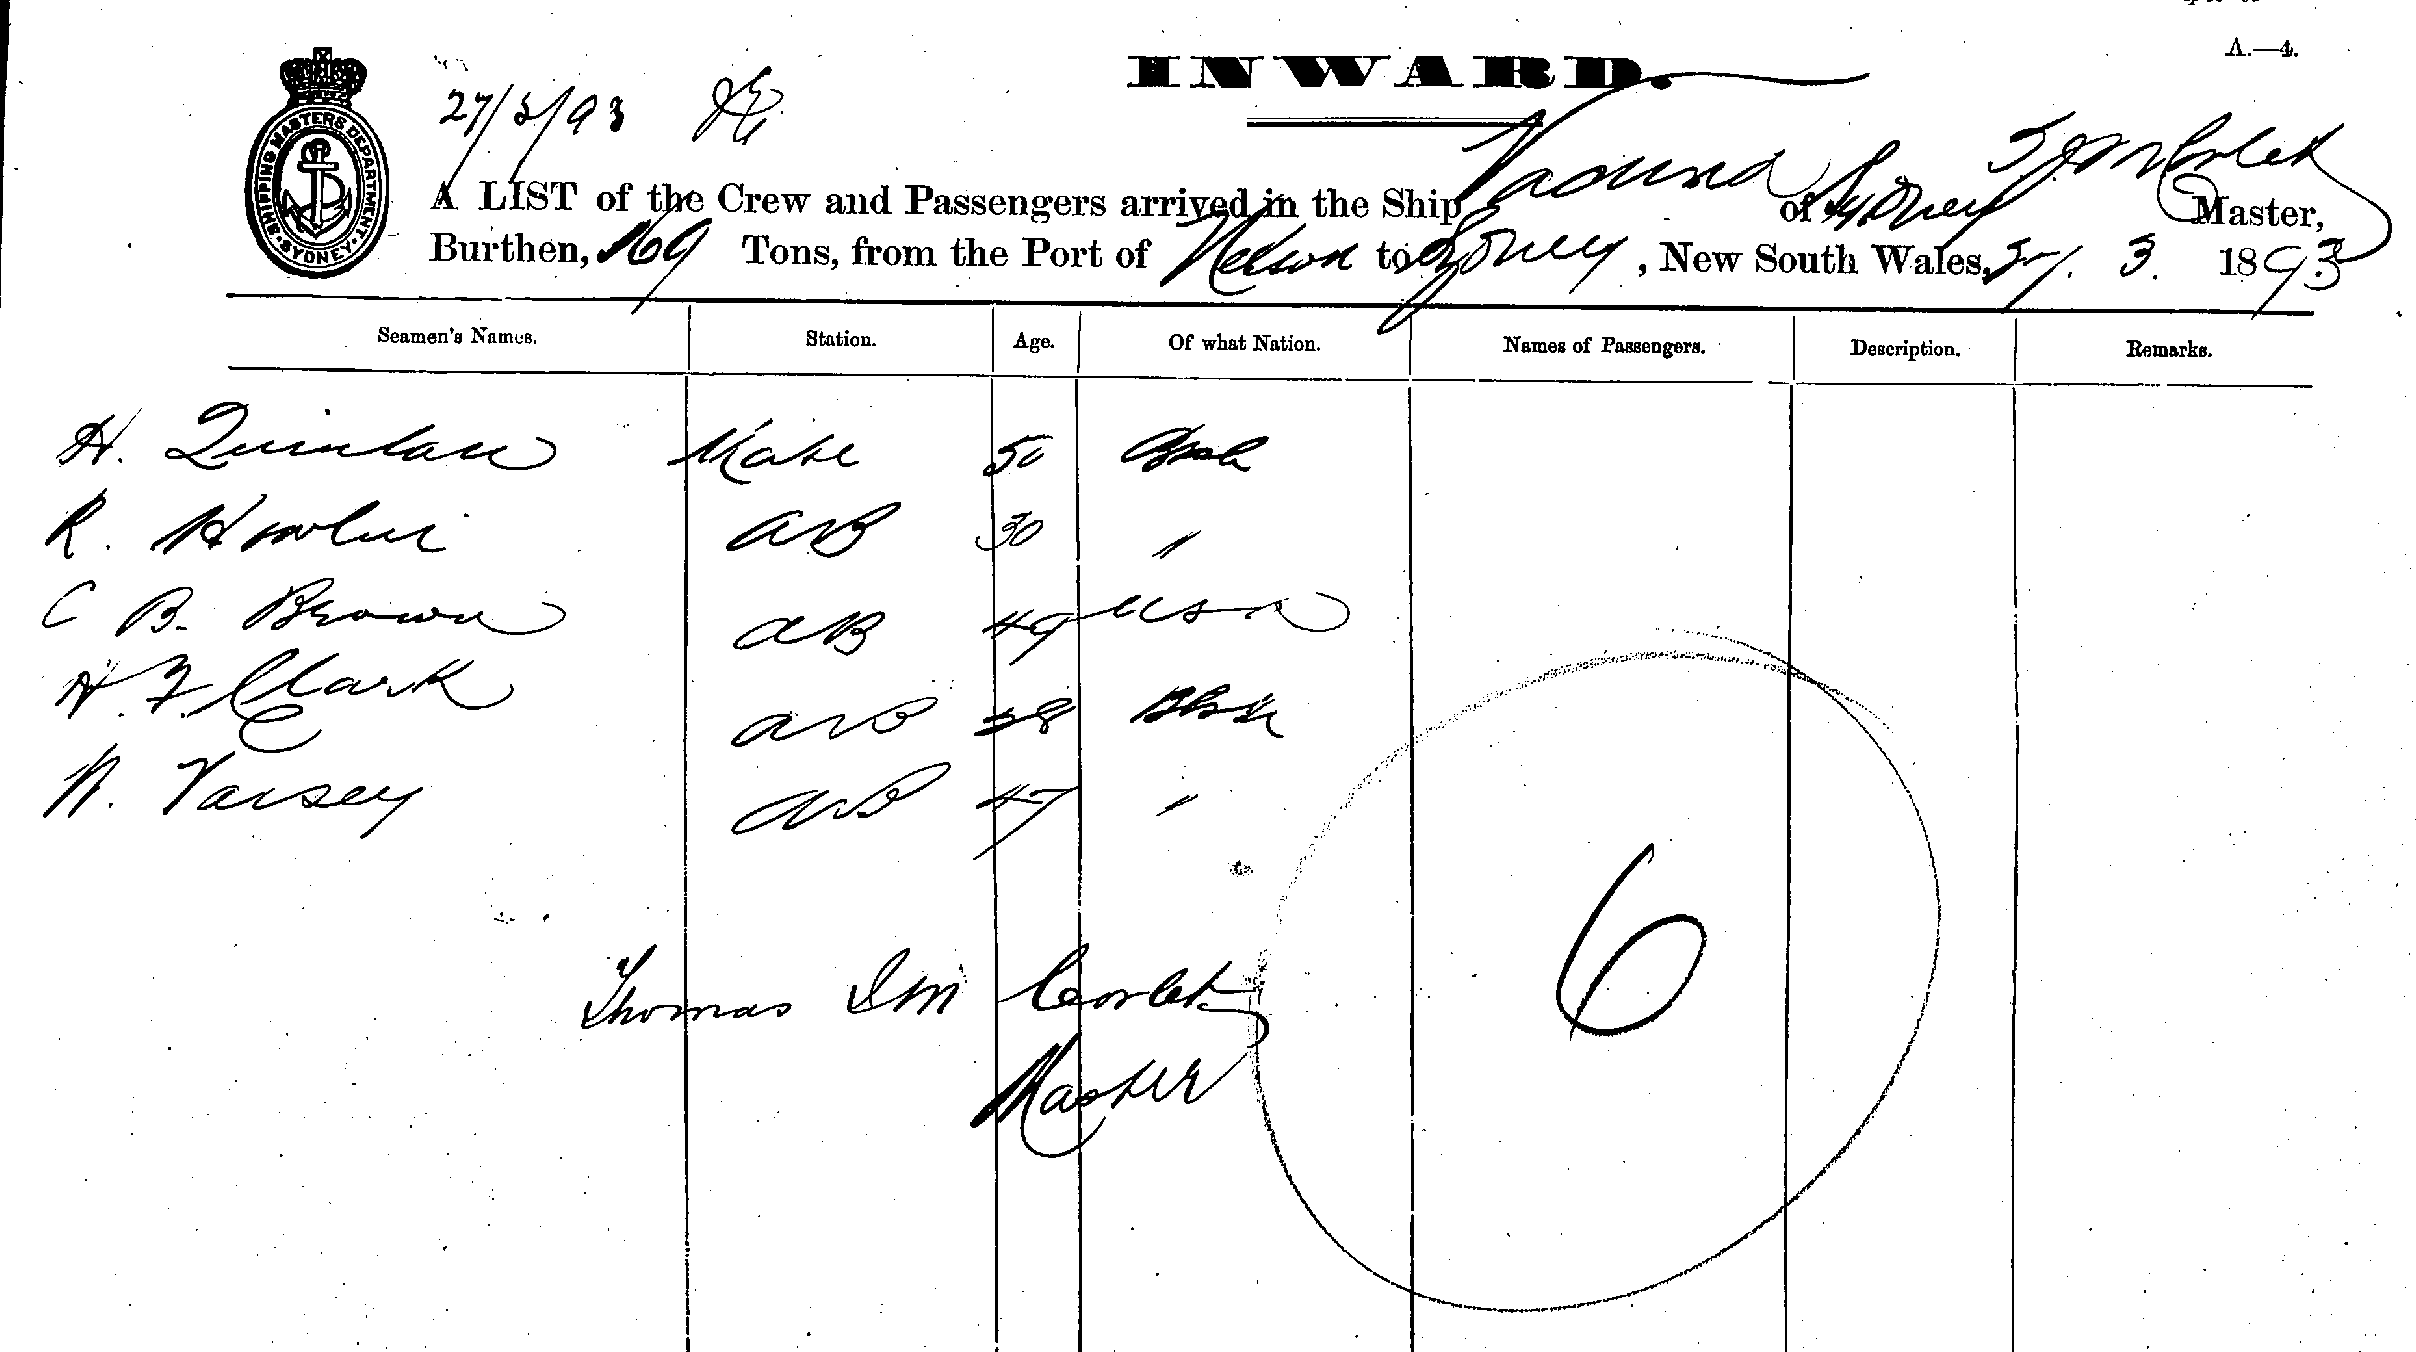 A.—4.
INWARD.
SHIPPING MASTERS DEPARTMENT. SYDNEY.
27/3/93
A LIST of the Crew and Passengers arrived in the Ship of Sydney T J M Corlet Master,
Burthen, 169 Tons, from the Port of Nelson to Sydney, New South Wales, 27. 3. 1893
Seamen's Names. Station. Age. Of what Nation. Names of Passengers. Description. Remarks.
H. Quinlan Mate 50
R. AB 30 "
C B. Brown AB 49 USA
H. F. Clark AB 38
N. Varsey AB 47 "
6
Thomas Corlet
Master